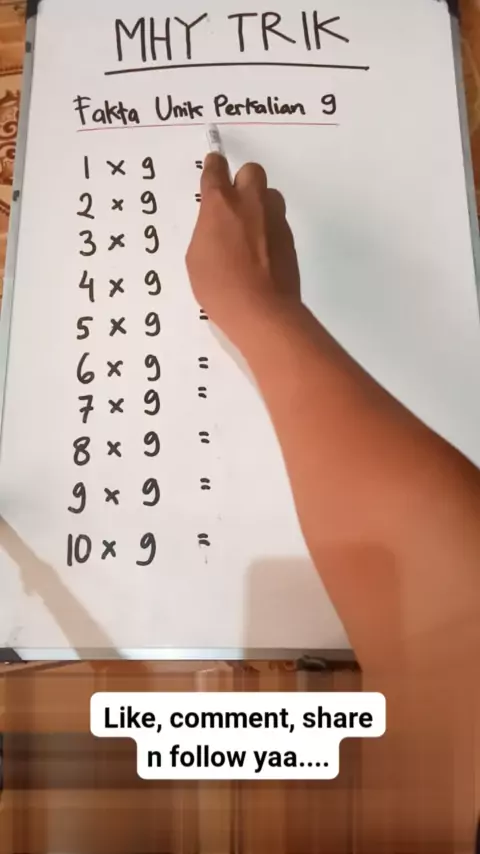 MHY TRIK
Fakta Unik Perkalian 9
1 × 9 =
2 × 9 =
3 × 9
4 × 9
5 × 9 =
6 × 9 =
7 × 9 =
8 × 9 =
9 × 9 =
10 × 9 =
Like, comment, share
n follow yaa....